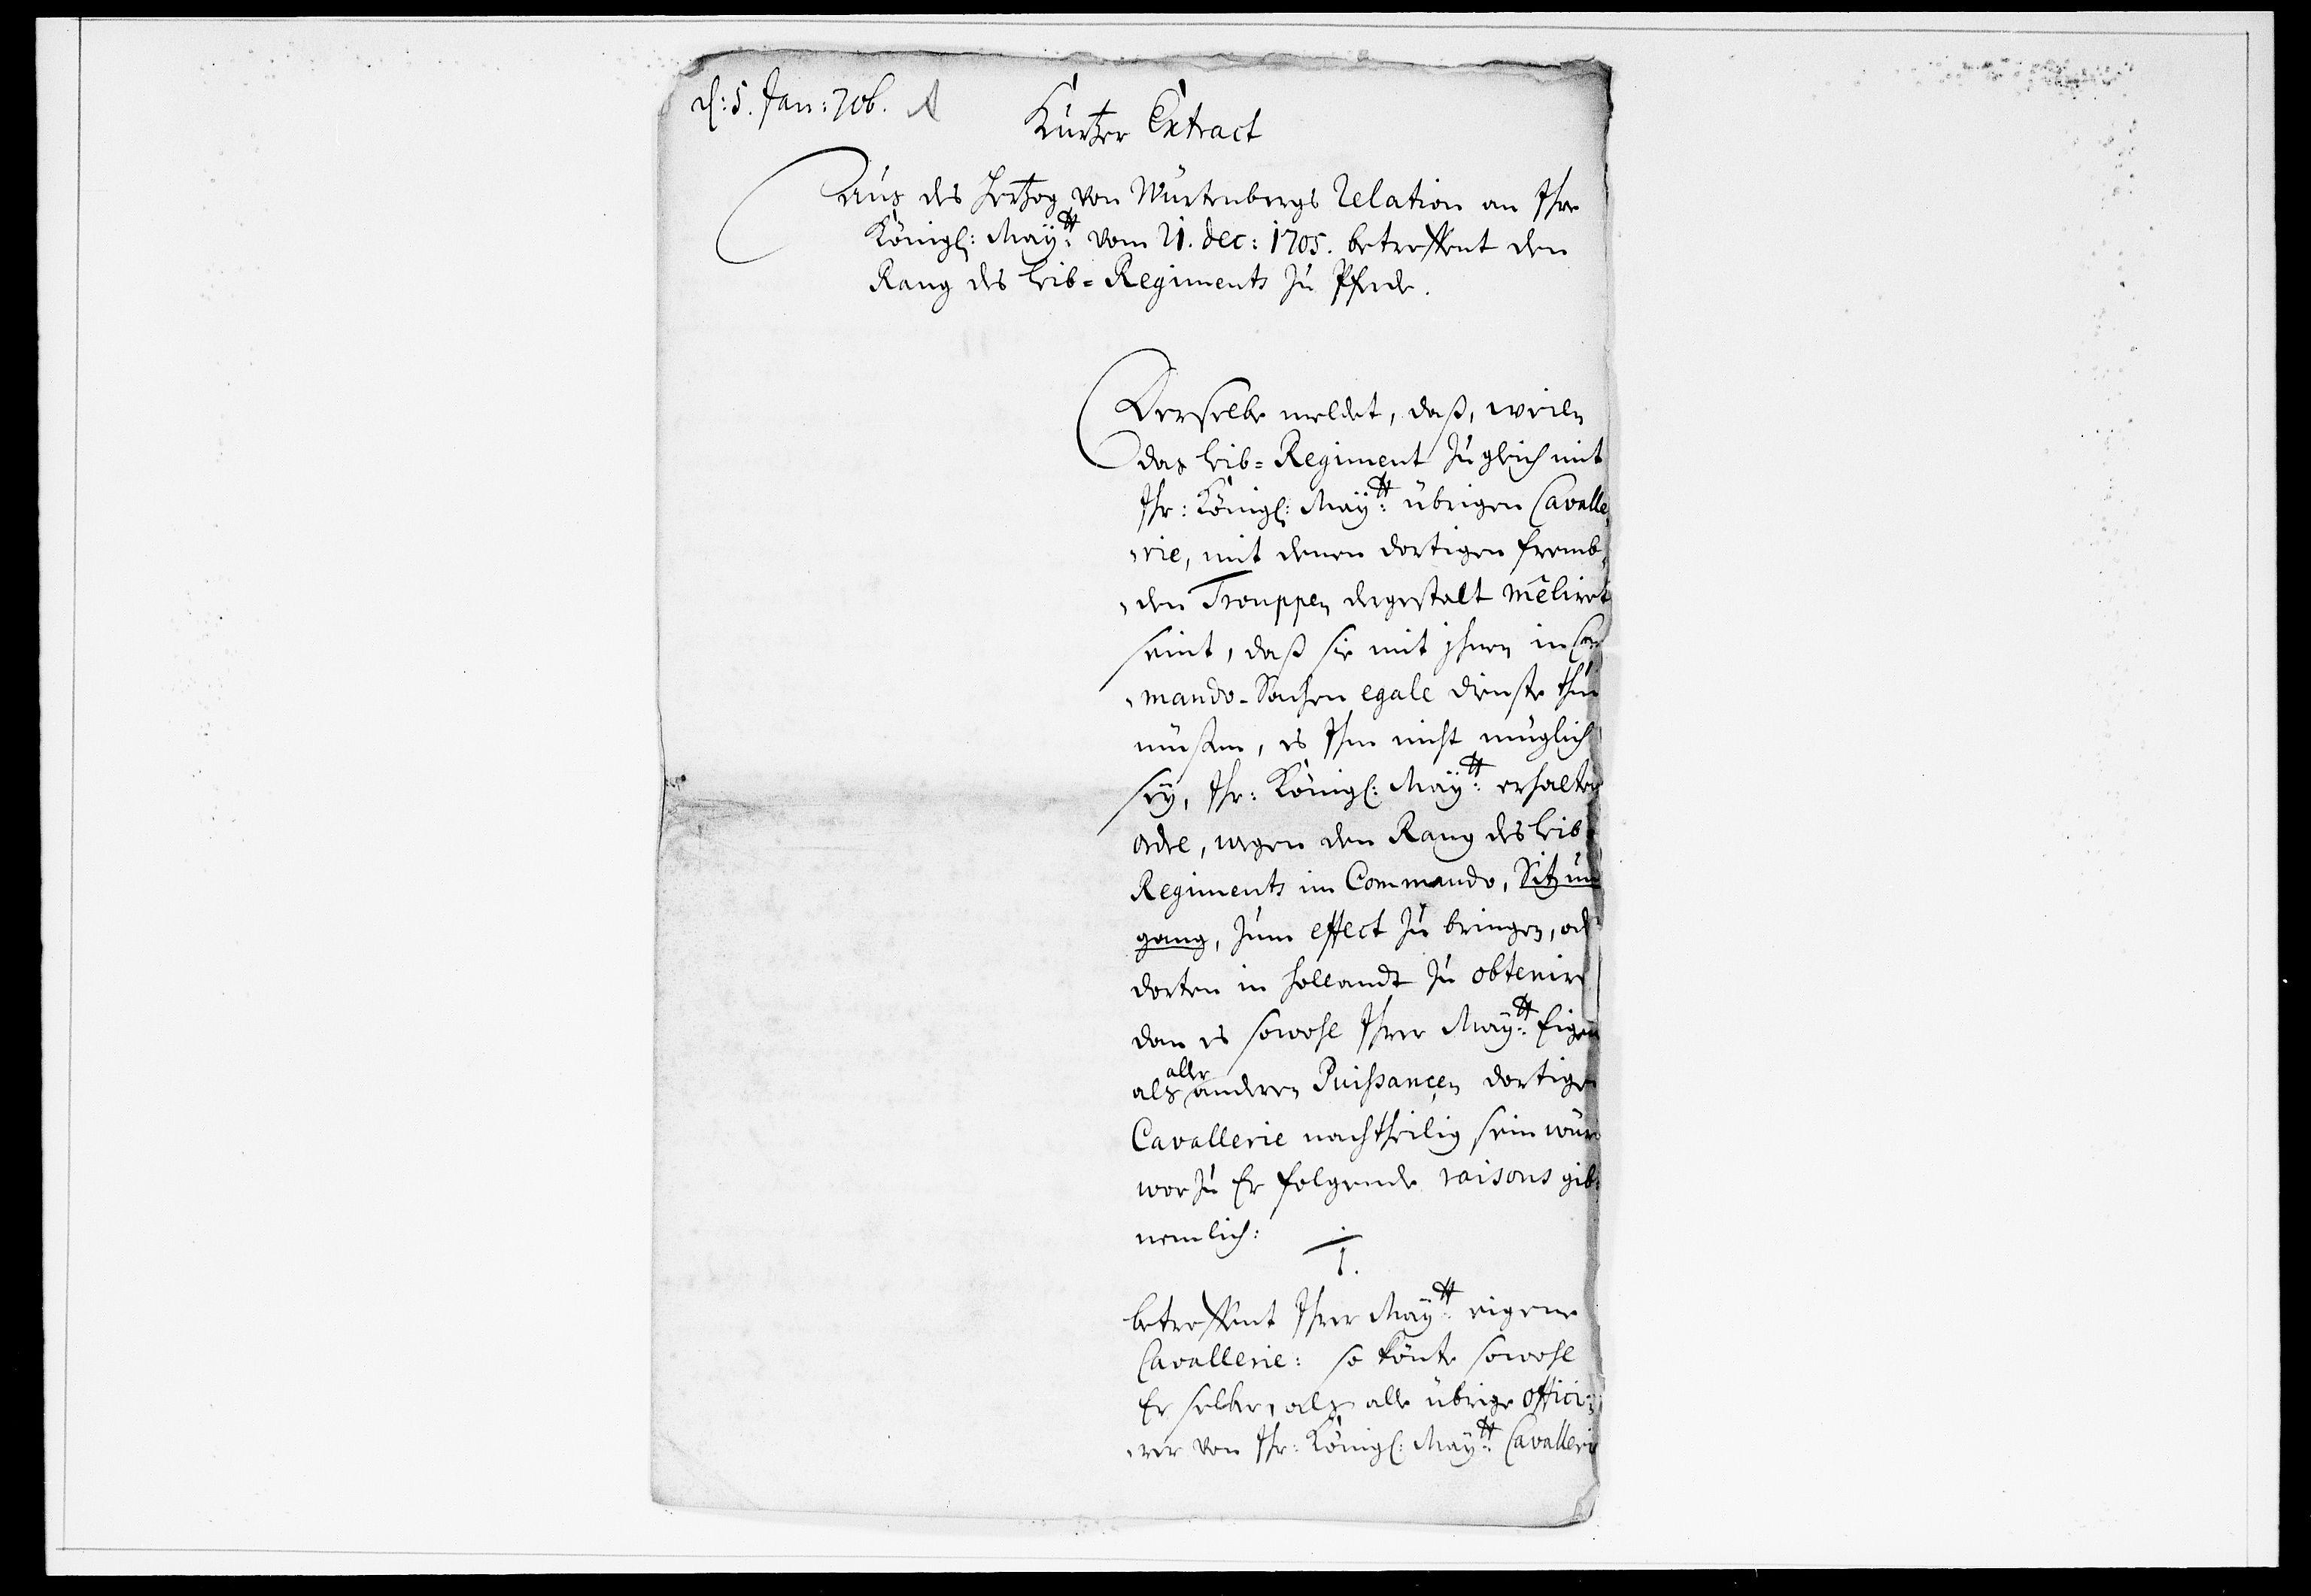 d: 5. Jan: 706. A
Kurtzer Extract
aus des Hertzog von Würtenbergs Relation an Ihre
Königl: Maÿ:tt vom 21. dec: 1705. betreffent den
Rang des Leib=Regiments zu Pferde.
Derselbe meldet, daß, weiln
das Leib=Regiment zugleich mit
Ihr: Königl: Maÿ:tt übrigen Cavalle,
,rie, mit denen dortigen fremb,
,den Trouppen dergestalt mêliret
seint, daß sie mit ihnen in Com
,mando-Sachen egale dienste thun
müßen, es Ihm nicht müglich
seÿ, Ihr: Königl: Maÿ:tt erhalten
ordre, wegen den Rang des Leib
Regiments im Commando, Sitz und
gang, zum effect zu bringen, od
dorten in Hollandt zu obtenire
dan es sowohl Ihrer Maÿ:tt Eigen
als aller anderen Puissancen dortigen
Cavallerie nachtheilig sein würd
worzu Er folgende raisons gib
nemlich:
1.
betreffent Ihrer Maÿ:tt eigene
Cavallerie: so könte sowohl
Er selber, als alle übrige offici
,rer von Ihr: Königl: Maÿ:tt Cavallerie